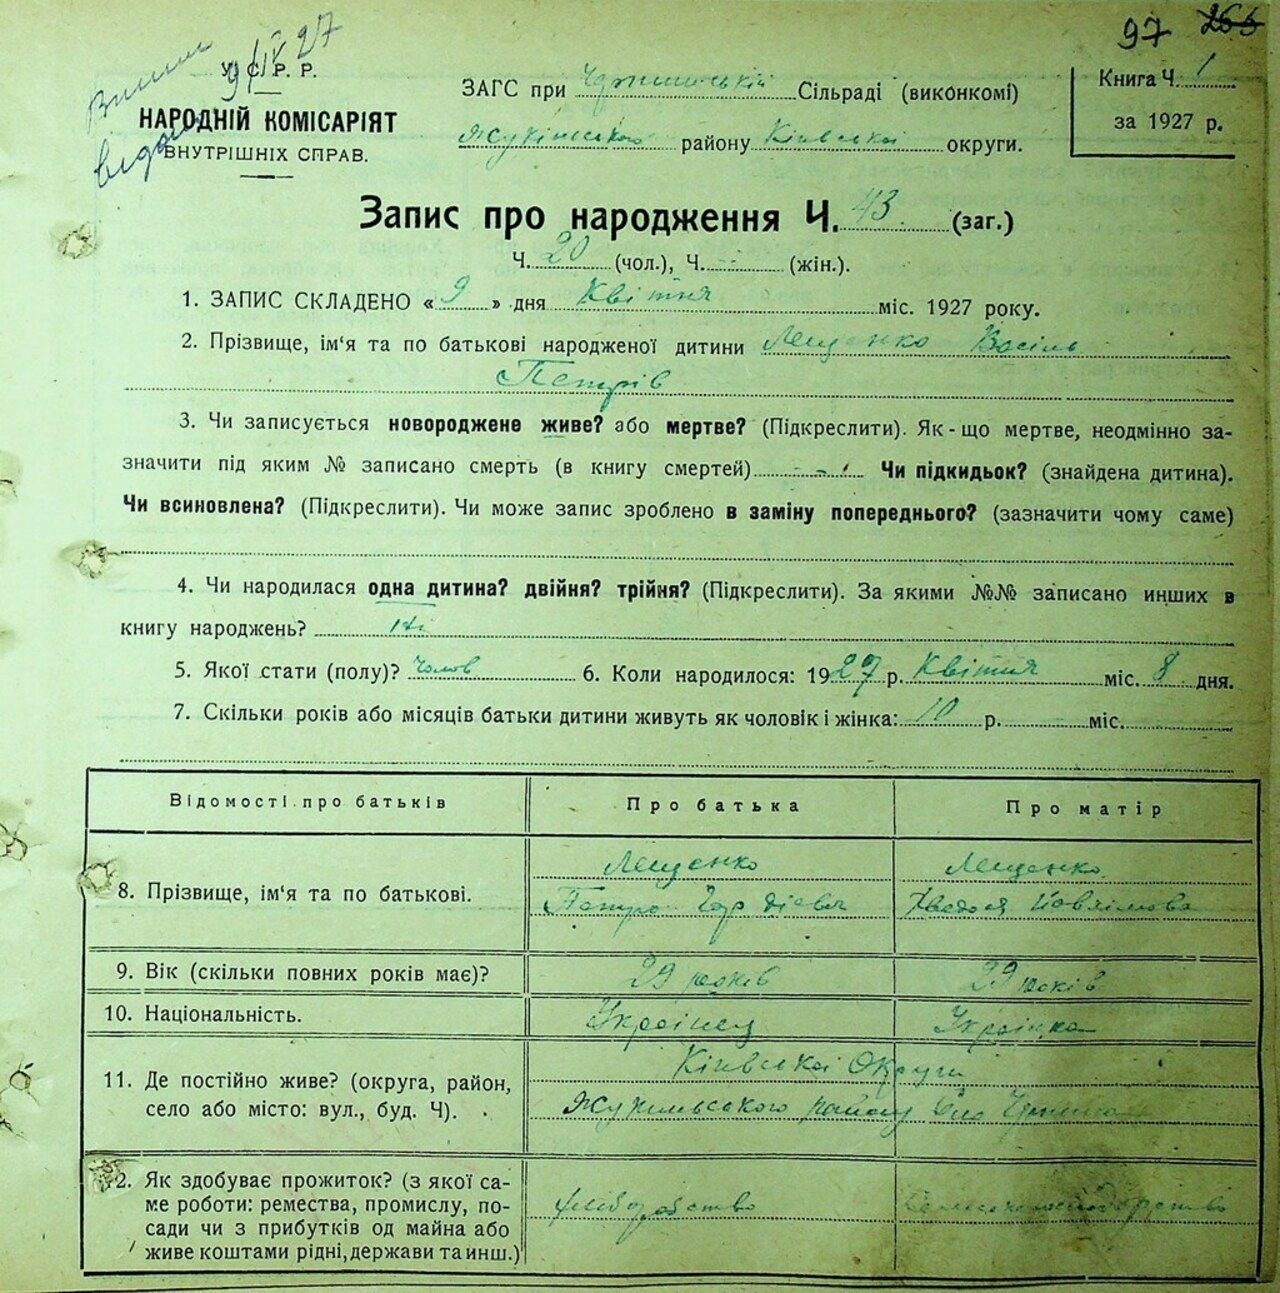 97 266
Книга Ч. 1
за 1927 р.
9/IV 27
У. С. Р. Р.
НАРОДНІЙ КОМІСАРІЯТ
ВНУТРІШНІХ СПРАВ.
ЗАГС при Сільраді (виконкомі)
району Київської округи.
Запис про народження Ч. 43 (заг.)
Ч. 20 (чол.), Ч. - (жін.).
1. ЗАПИС СКЛАДЕНО « 9 » дня Квітня міс. 1927 року.
2. Прізвище, ім'я та по батькові народженої дитини Лещенко Василь
Петрів
3. Чи записується новороджене живе? або мертве? (Підкреслити). Як-що мертве, неодмінно за-
значити під яким № записано смерть (в книгу смертей) - Чи підкидьок? (знайдена дитина).
Чи всиновлена? (Підкреслити). Чи може запис зроблено в заміну попереднього? (зазначити чому саме)
4. Чи народилася одна дитина? двійня? трійня? (Підкреслити). За якими №№ записано инших в
книгу народжень? Ні
5. Якої стати (полу)? Чолов 6. Коли народилося: 1927 р. Квітня міс. 8 дня.
7. Скільки років або місяців батьки дитини живуть як чоловік і жінка: 10 р. міс.
Відомості про батьків Про батька Про матір
8. Прізвище, ім'я та по батькові. Лещенко Лещенко
Петро Гордієв Хведося
9. Вік (скільки повних років має)? 29 років 29 років
10. Національність. Украінец Украінка
11. Де постійно живе? (округа, район, Київської Округи
село або місто: вул., буд. Ч). району Село
12. Як здобуває прожиток? (з якої са-
ме роботи: ремества, промислу, по-
сади чи з прибутків од майна або
живе коштами рідні, держави та инш.) хлиборобство